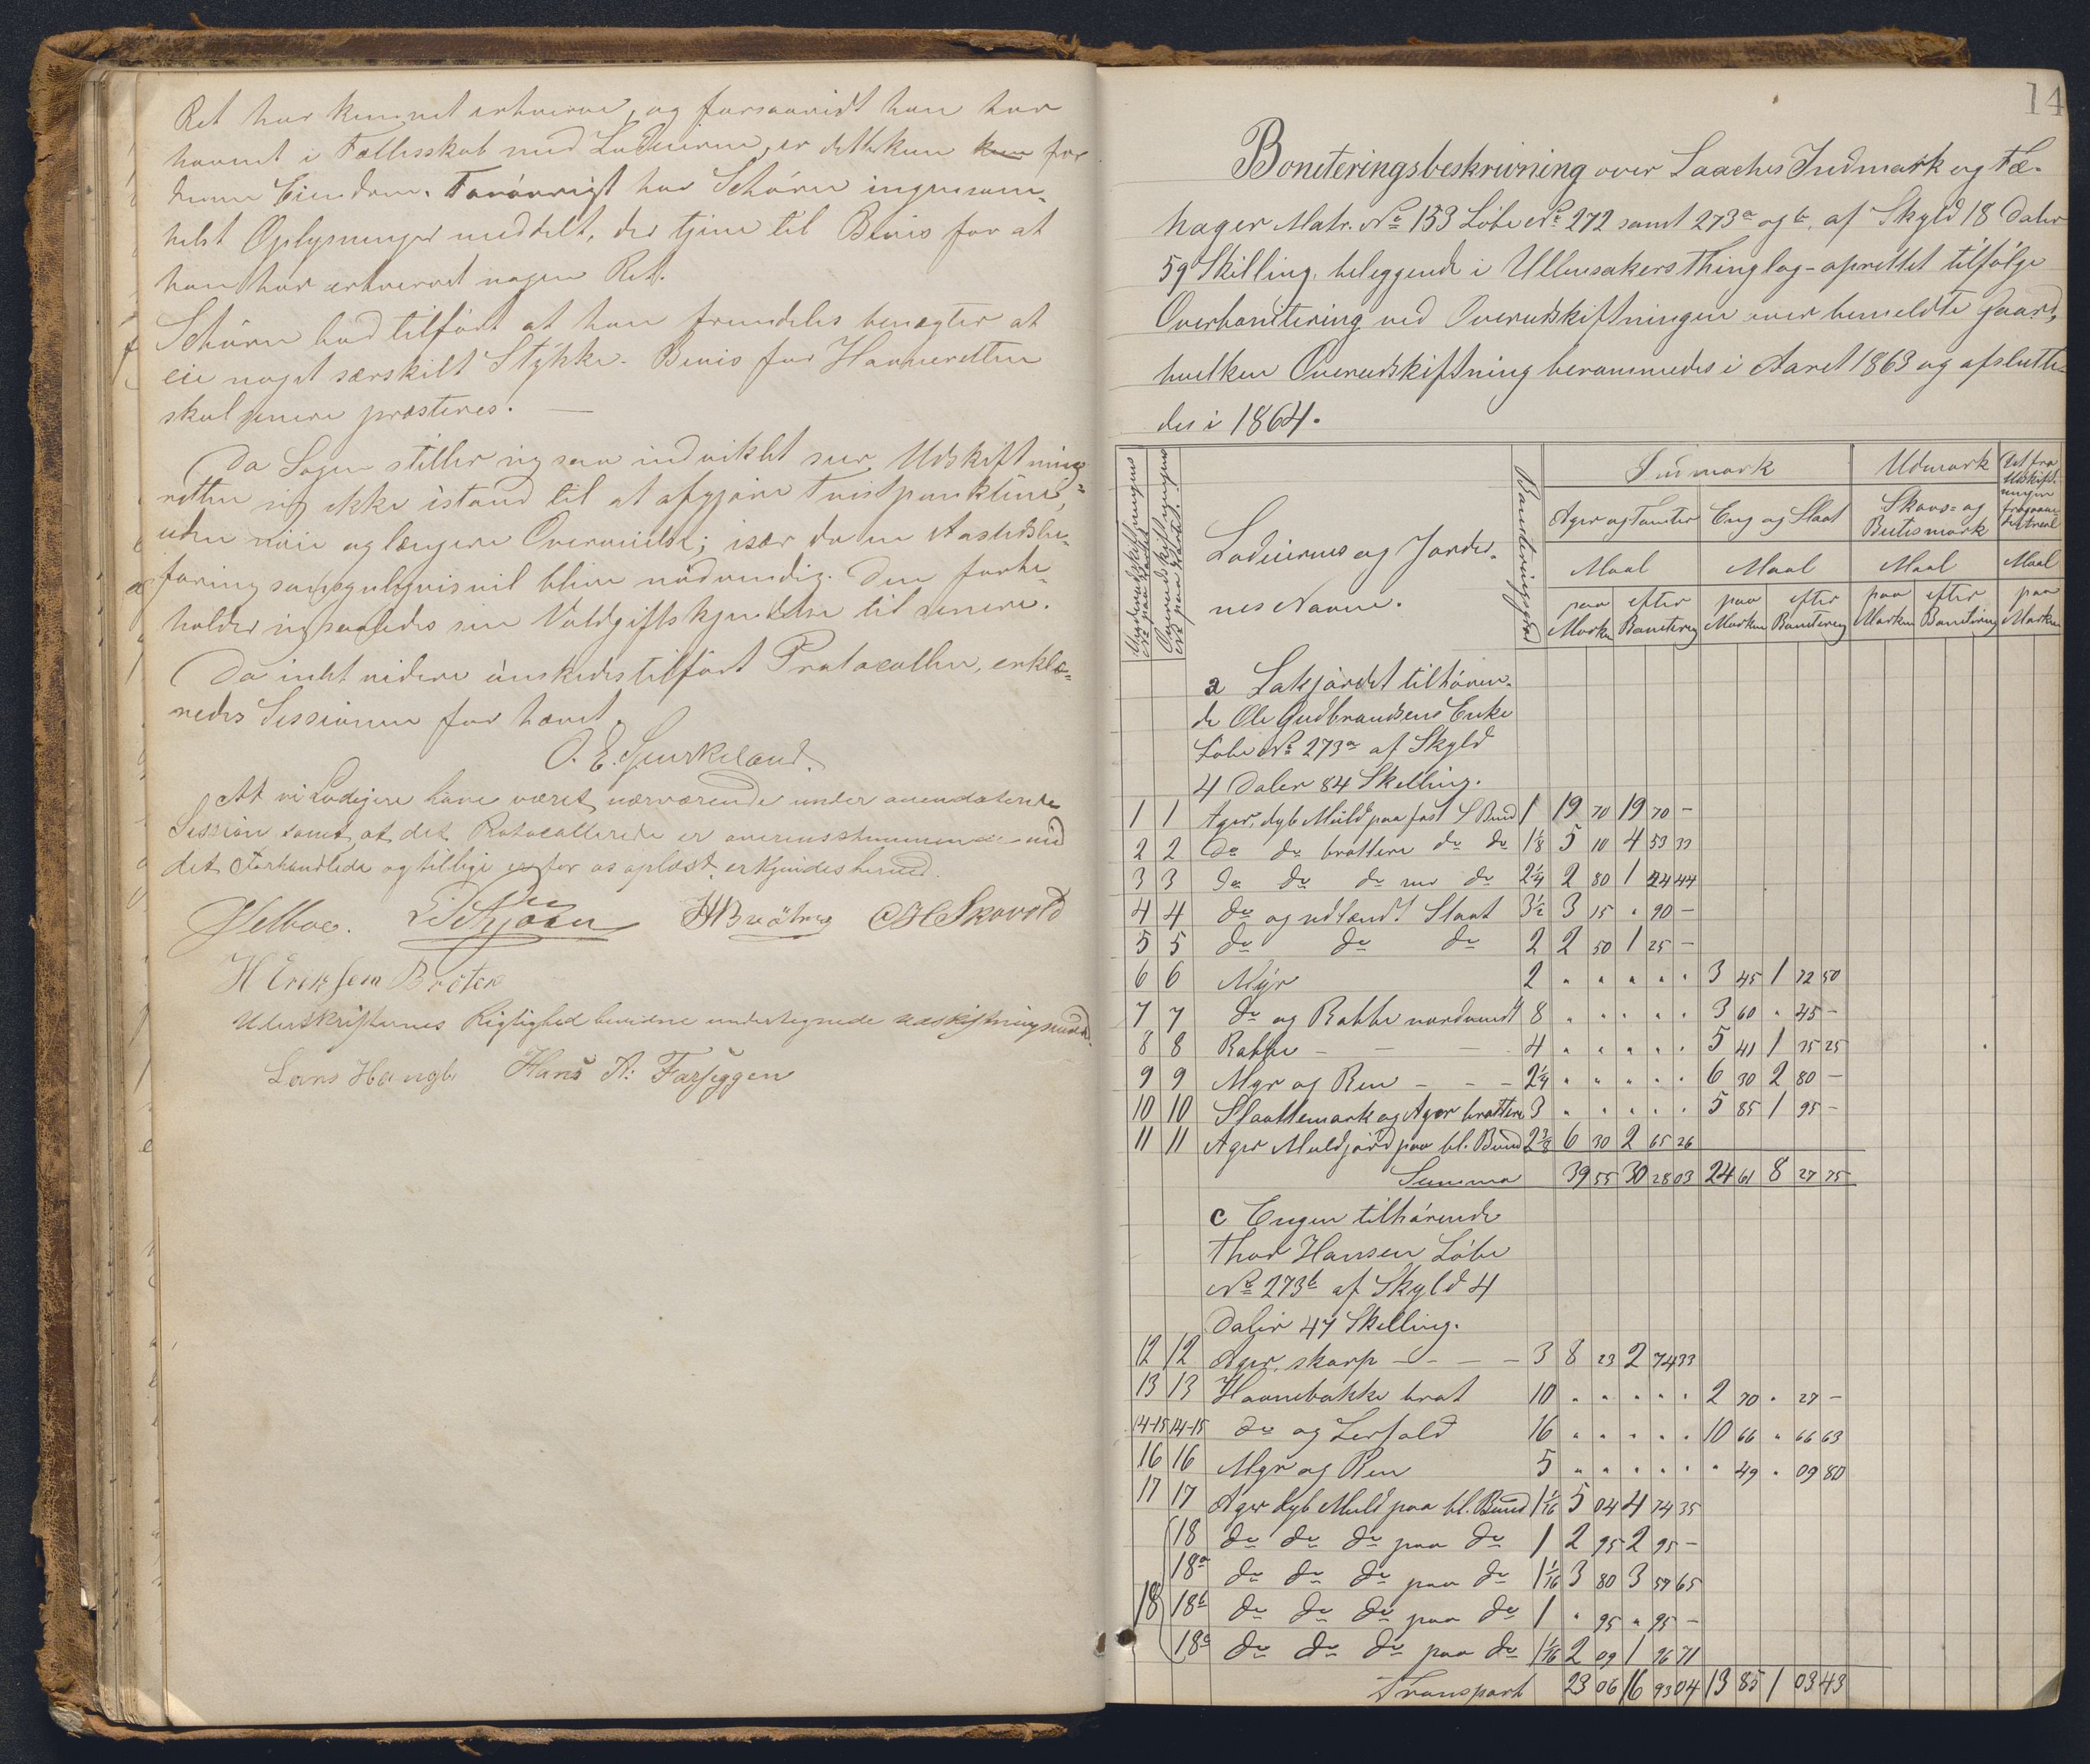 Ret har kunnet erhverve, og forsaavidt han har
havnet i Fællesskab med Lodeierne, er dette kun kun for
denne Eiendom. Forøvrigt har Schørn ingensom-
helst Oplysninger meddelt, der tjene til Bevis for at
han har erhvervet nogen Ret.
Schørn lod tilført at han fremdeles benægter at
eie noget særskilt Stykke. Bevis for Havneretten
skal senere præsteres. —
Da Sagen stiller sig saa indviklet seer Udskiftnings-
retten sig ikke istand til at afgjøre Tvistpunkterne,
uden nøie og længere Overveielse; især da en Aastedsbe-
faring sandsynligvis vil blive nødvendig. Den forbe-
holder sig saaledes sin Voldgiftskjendelse til senere.
Da intet videre ønskedes tilført Protocollen, erklæ-
redes Sessionen for hævet.
O. E. Spurkeland.
At vi Lodeiere have været nærværende under ovendaterede
Session samt, at det Protocollerede er overensstemmende med
det Forhandlede og tillige er for os oplæst, erkjendes herved.
Velboe. HBraathen CHSkovold
H Eriksen Bröten
Underskrifternes Rigtighed bevidne undertegnede Udskiftningsmænd.
Lars Haugli Hans A: Farseggen
14
Boniteringsbeskrivning over Laaches Indmark og Fæ-
hager Matr. No 153 Løbe No 272 samt 273a og b, af Skyld 18 Daler
59 Skilling, beliggende i Ullensakers Thinglag - oprettet tilfølge
Overbonitering ved Overudskiftningen over bemeldte Gaard,
hvilken Overudskiftning berammedes i Aaret 1863 og afslutte-
des i 1864.
Overudskiftningens
No paa Kartet.
Lodeiernes og Jorder-
nes Navne.
Boniteringsgrad
Indmark
Udmark
Det fra
Udskift-
ningen
fragaaede
Areal
Ager og Tomter
Eng og Slaat
Skovs- og
Beitesmark
Maal Maal Maal Maal
paa Marken efter Bonitering paa Marken efter Bonitering paa Marken efter Bonitering paa Marken
a Lakjordet tilhøren-
de Ole Gudbrandsens Enke
Løbe No 273a af Skyld
4 Daler 84 Skilling.
1 1 Ager, dyb Muld paa fast L Bund 1 19 70 19 70 -
2 2 do do brattere do do 1 1/8 5 10 4 53 33
3 3 do do do nor do 2 1/4 2 80 1 24 44
4 4 do og udlændt Slaat 3 1/2 3 15 " 90 -
5 5 do do do 2 2 50 1 25 -
6 6 Myr 2 " " " " " 3 45 1 72 50
7 7 do og Rabbe nordvendt 8 " " " " " 3 60 " 45 -
8 8 Rabbe - - - 4 " " " " " 5 41 1 35 25
9 9 Myr og Ren - - - 2 1/4 " " " " " 6 30 2 80 -
10 10 Slaattemark og Ager brattere 3 " " " " " 5 85 1 95 -
11 11 Ager Muldjord paa bl. Bund 2 3/8 6 30 2 65 26
Summa 39 55 30 28 03 24 61 8 27 75
c Engen tilhørende
Thor Hansen Løbe
No 273b af Skyld 4
Daler 47 Skilling.
12 12 Ager, skarp - - - - 3 8 23 2 74 33
13 13 Havnebakke brat 10 " " " " " 2 70 " 27 -
14-15 14-15 do og Lerfald 16 " " " " " 10 66 " 66 63
16 16 Myr og Ren 5 " " " " " " 49 " 09 80
17 17 Ager dyb Muld paa bl. Bund 1 1/16 5 04 4 74 35
18 do do do paa do 1 2 95 2 95 -
18a do do do paa do 1 1/16 3 80 3 57 65
18 18b do do do paa do 1 " 95 " 95 -
18c do do do paa do 1 1/16 2 09 1 96 71
Transport 23 06 16 93 04 13 85 1 03 43